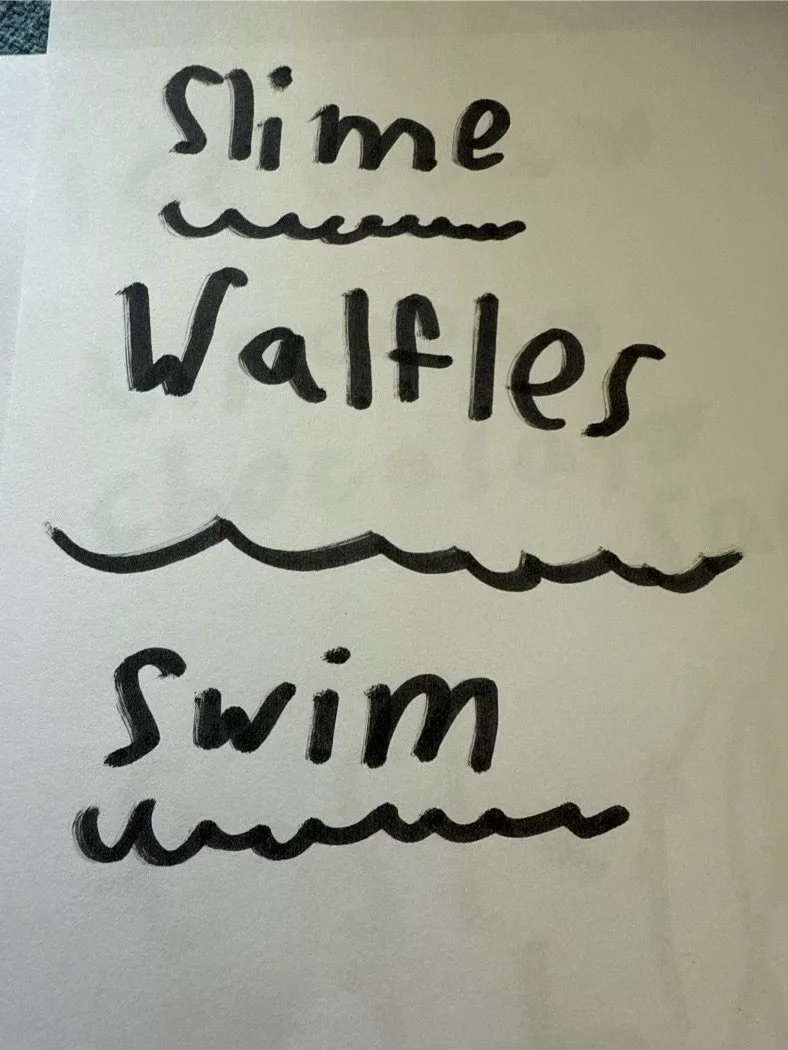 Slime
Walfles
Swim